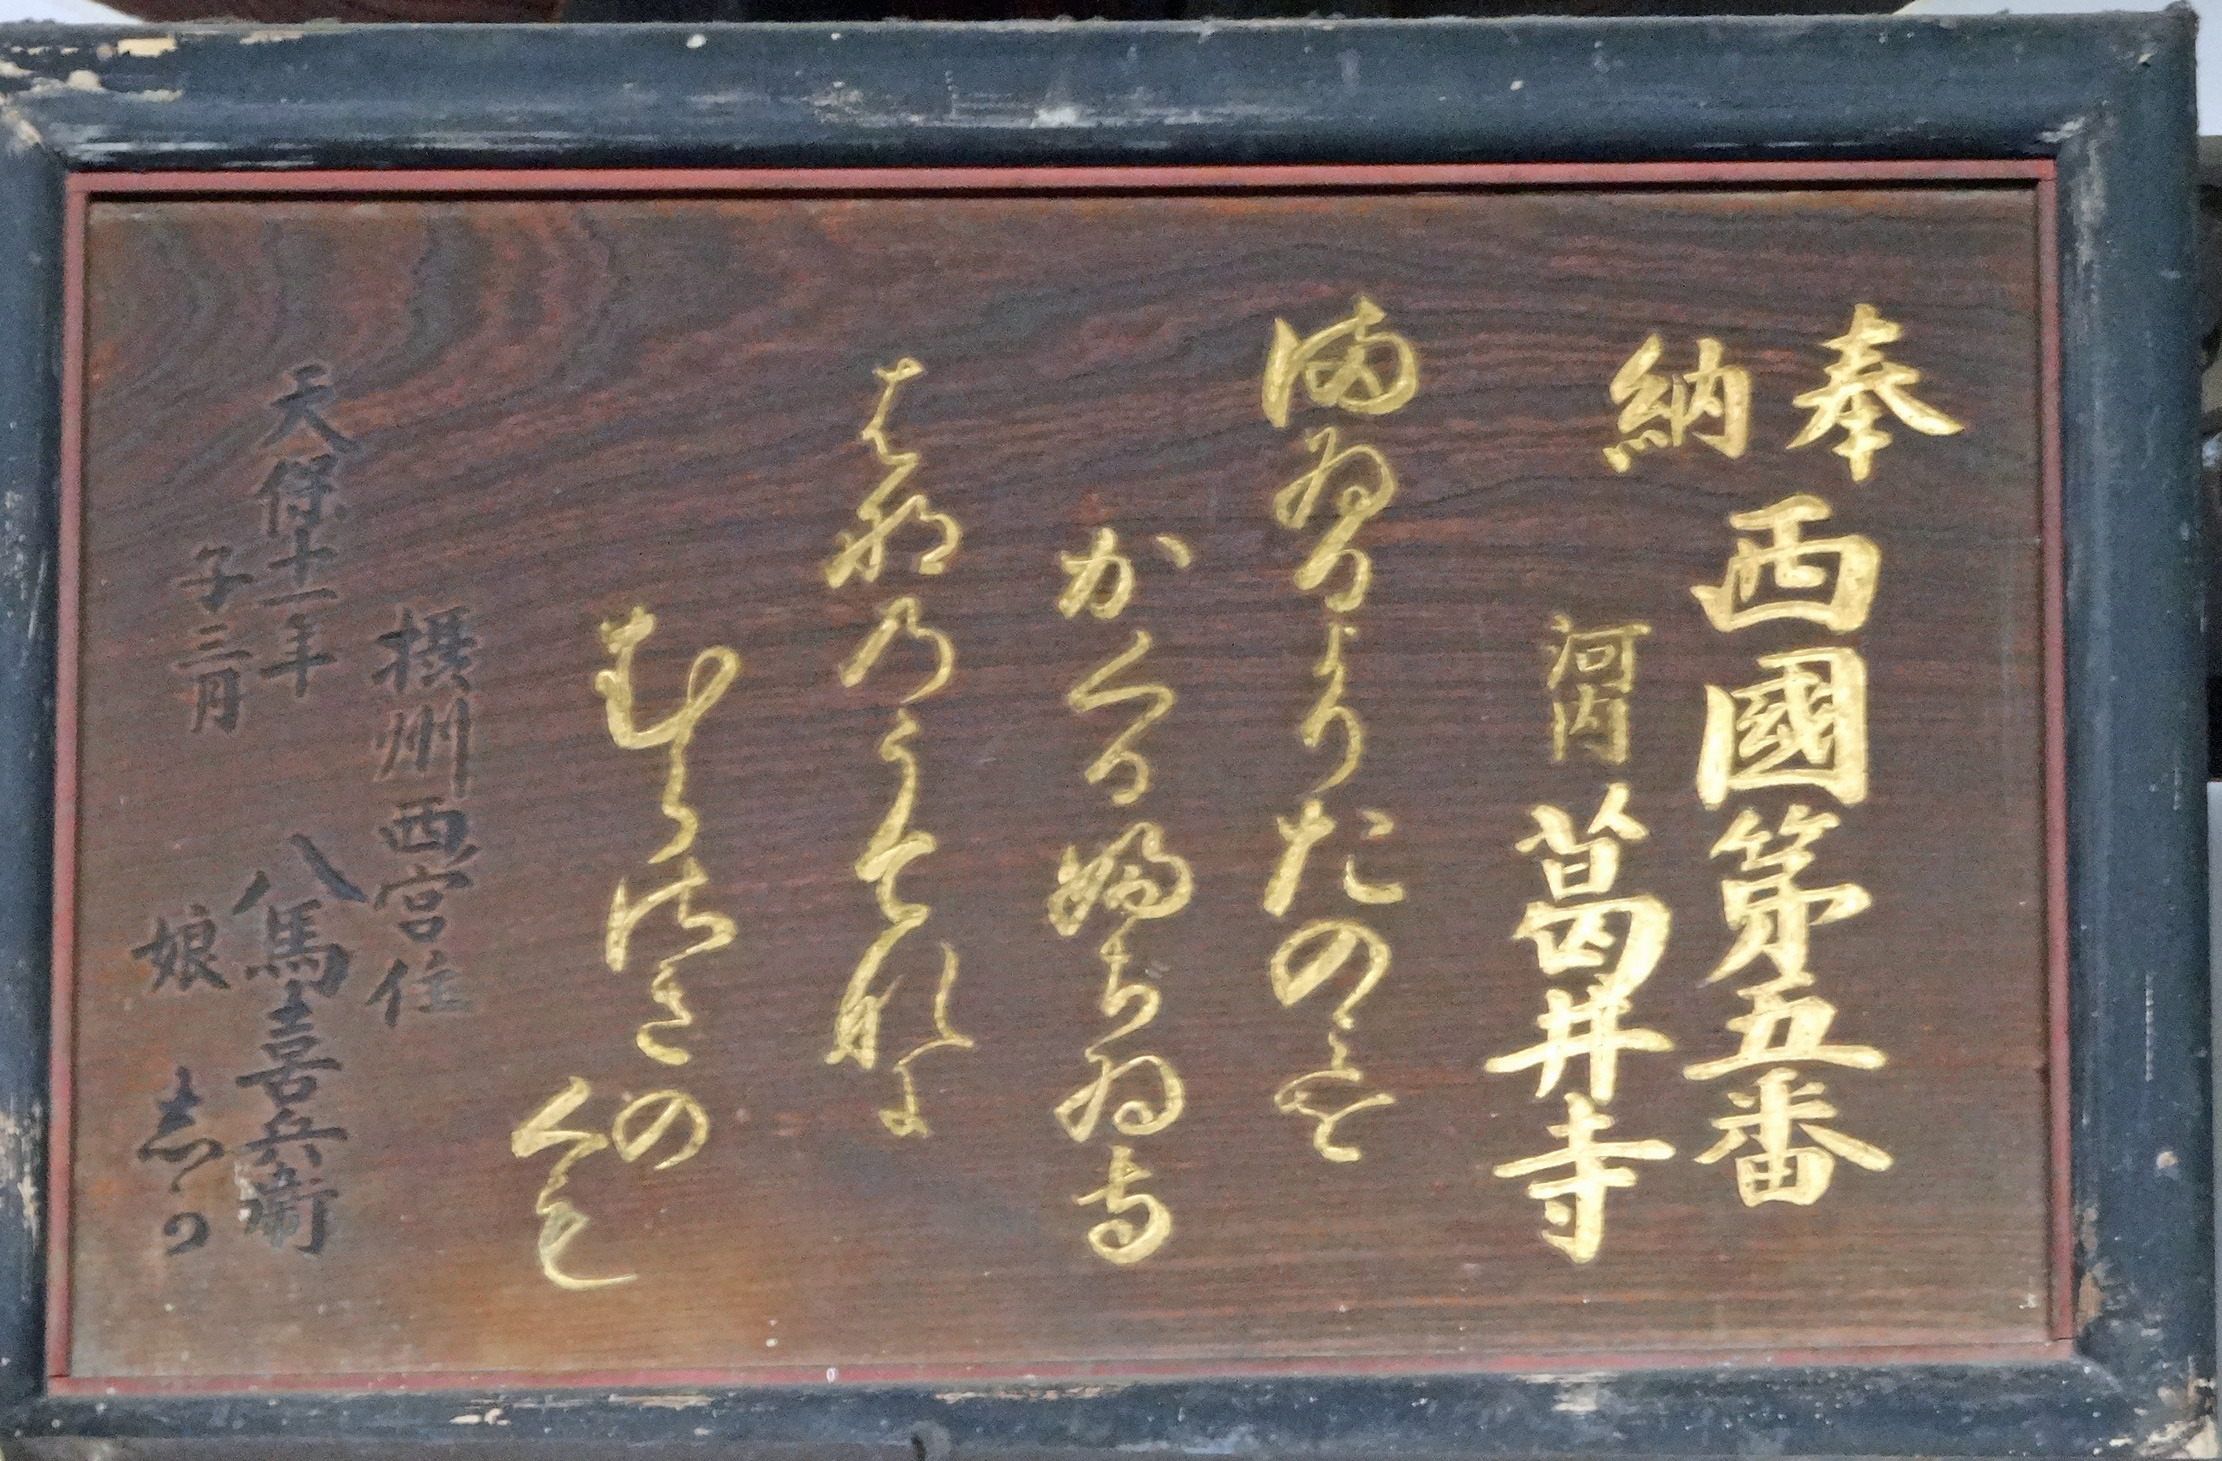 奉納
西國第五番
河内 葛井寺
満ゐるよりたのミを
かくる婦ぢゐ寺
は那乃うてなに
むら佐きの
くも
摂州西宮住
天保十一年 八馬喜兵衛
子三月 娘 志